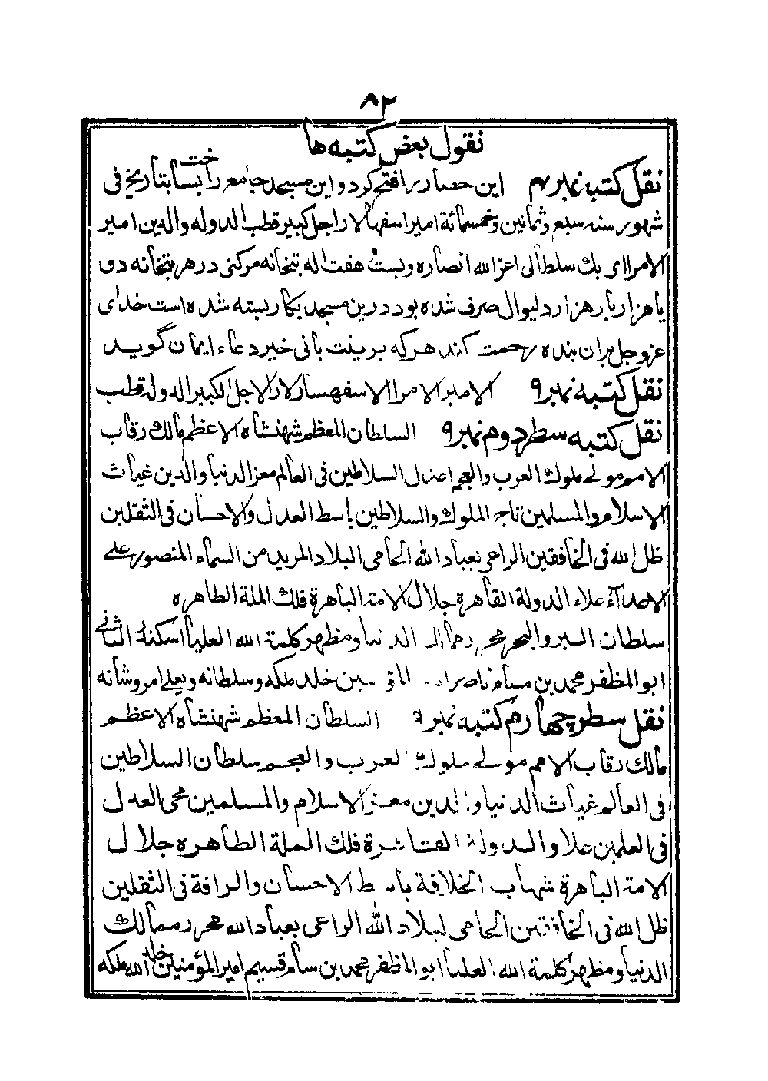 ۸۲
نقول بعض کتبه ها
نقل کتبه نمبر ۴ این حصار را فتح کرد و این مسجد جامع را بساخت بتاریخ فی
شهور سنه سبع و ثمانین و خمسمائة امیر اسفهالار اجل کبیر قطب الدوله والدین امیر
الامرا ای بك سلطانی اعز الله انصاره و بست هفت اله بتخانه مرکنی در هر بتخانه دو
باهزار بار هزار دلیوال صرف شده بود درین مسجد بکار بسته شده است خدای
عزوجل بران بنده رحمت کند هر که بر نیت بانی خیر دعاء ایمان گوید
نقل کتبه نمبر ۹ الامیر الامرا الاسفهسالار الاجل الکبیر الدوله قطب
نقل کتبه سطر دوم نمبر ۹ السلطان المعظم شهنشاه الاعظم مالك رقاب
الامم مولے ملوك العرب والعجم اعدل السلاطین فی العالم معز الدنیا والدین غیاث
الاسلام والمسلمین تاج الملوك والسلاطین باسط العدل والاحسان فی الثقلین
ظل الله فی الخافقین الراعی بعباد الله الحامی البلاد الموید من السماء المنصور علے
الاعداء علاء الدولة القاهرة جلال الامة الباهرة فلك الملة الطاهره
سلطان البر والبحر الدنیا و مظهر کلمة الله العلیا اسکندر الثانے
ابو المظفر محمد بن سام ناصر خلد ملکه و سلطانه و یعلے امره و شانه
نقل سطر چهارم کتبه نمبر ۹ السلطان المعظم شهنشاه الاعظم
مالك رقاب الامم مولے ملوك العرب والعجم سلطان السلاطین
فی العالم غیاث الدنیا والدین معز الاسلام والمسلمین محی العدل
فی العلمین علاء الدولة القاهرة فلك الملة الطاهره جلال
الامة الباهرة شهاب الخلافة باسط الاحسان والرافة فی الثقلین
ظل الله فی الخافقین الحامی لبلاد الله الراعی بعباد الله محرز ممالك
الدنیا و مظهر کلمة الله العلیا ابو المظفر محمد بن سام قسیم امیر المؤمنین خلد الله ملکه